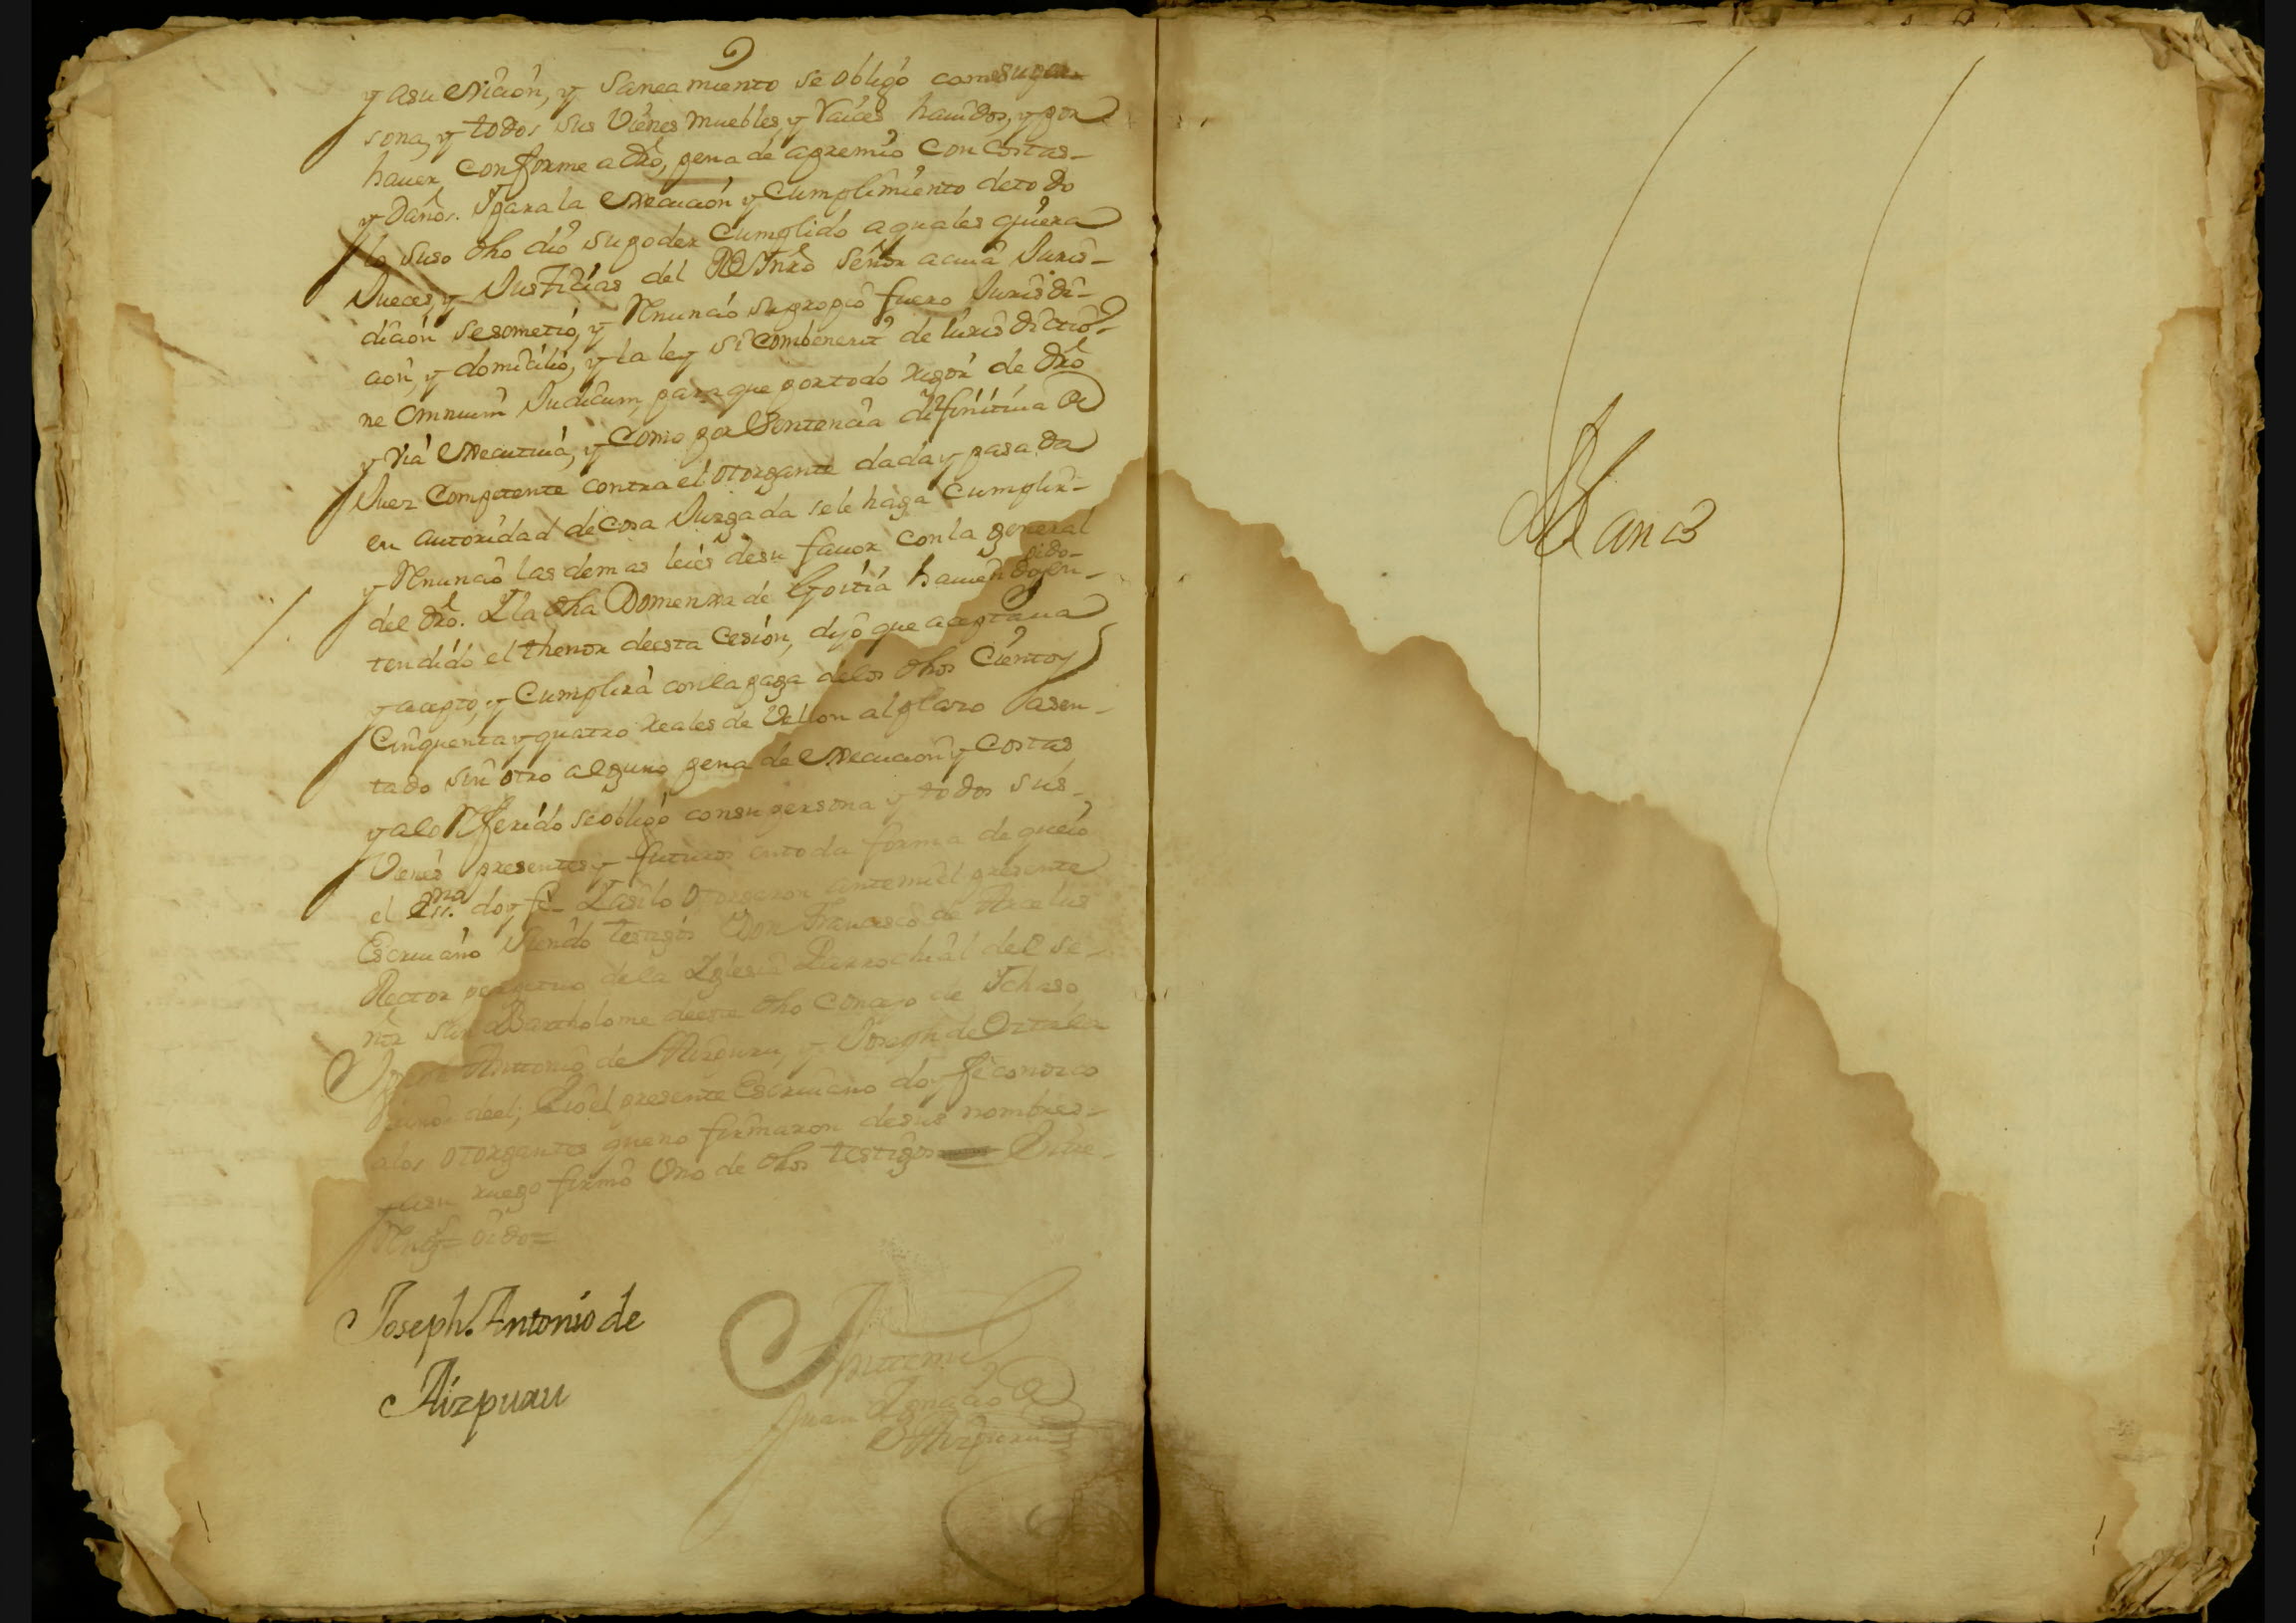 y asu Viccion, y Saneamiento se obligó con su per-
sona, y todos sus Vienes muebles y Raices hauidos, y por
hauer conforme a dro, pena de apremio con costas-
y daños. Y para la execucion y Cumplimiento de todo
lo suso dho dio su poder Cumplido a quales quiera
Jueces, y Justicias del Rey nro Señor a cuia Juris-
dicion se sometió, y Renunció su propio fuero Jurisdi-
cion, y domicilio, y la ley si combenerit de iurisdictio-
ne Omnium Judicum, para que por todo rigor de dro
y via executiua, y como por Sentencia difinitiua de
Juez Competente contra el otorgante dada y pasada
en autoridad de cosa Juzgada se le haga cumplir-
y Renunció las demas leies de su fauor con la general
del dro. Y la dha Domenxa de Goitia hauiendo oido- y en-
tendido el thenor de esta Cesion, dijo que aceptaua
y acepto, y Cumplirá con la paga de los dhos Ciento y
Cinquenta y quatro reales de Vellon al plazo asen-
tado sin otro alguno pena de execucion y costas
y a lo Referido se obligó con su persona y todos sus-
Vienes presentes y futuros en toda forma de que io
el Esno. doy fe- Y asi lo otorgaron ante mi el presente
Escriuano siendo testigos Don Francisco de Arcelus
Rector perpetuo de la Yglesia Parrochial del Se-
ñor San Bartholome de este dho Concejo de Ichaso
Joseph Antonio de Aizpuru, y Joseph de Oztalza
Vecinos de el; Y io el presente Escriuano doy fe conozco
a los otorgantes que no firmaron de sus nombres-
y a su ruego firmó Vno de dhos testigos Entre-
Rengs= oido=
Joseph. Antonio de
Aizpuru
Ante mi
Juan Ignacio de
Aizpuru
Blanco